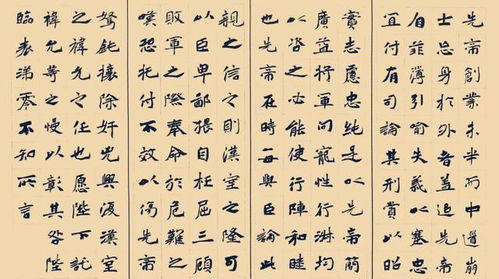 先帝創業未半而中道崩
士忠身於外者盖追先帝
自菲薄引喻失義以塞忠
宜付有司論其刑賞以昭
實志慮忠純是以先帝簡
廣益將軍向寵性行淑均
以咨之必能使行陣和睦
也先帝在時每與臣論此
親之信之則漢室之隆可
以臣卑鄙猥自枉屈三顧
敗軍之際奉命於危難之
嘆恐托付不效以傷先帝
駑鈍攘除奸兇興復漢室
之禕允之任也願陛下託
禕允等之慢以彰其咎陛
臨表涕零不知所言